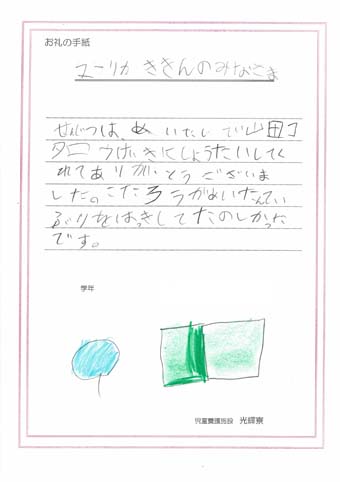 お礼の手紙
ユーリカ ききんのみなさま
せんじつは、めいたんていで山田コ
タロウげきにしょうたいしてく
れてありがとうございま
した。こたろうがめいたんてい
ぶりをはっきしてたのしかった
です。
学年
児童養護施設 光輝寮